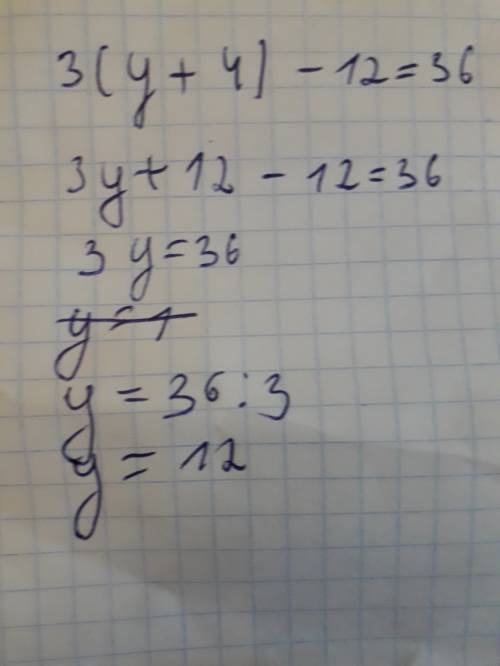 3(y + 4) - 12 = 36
3y + 12 - 12 = 36
3 y = 36
y = 1
y = 36 : 3
y = 12